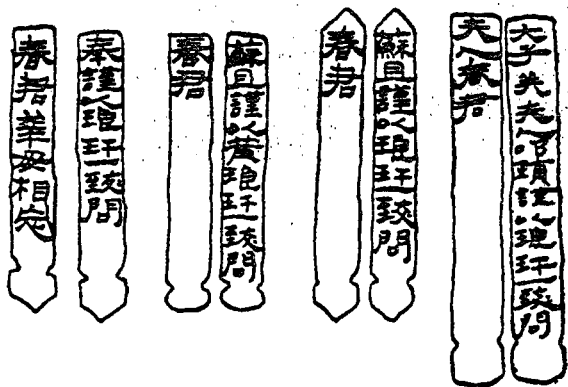 大子美夫人叩頭謹以琅玕一致問
夫人春君
蘇且謹以琅玕一致問
春君
蘇且謹以黃琅玕一致問
春君
奉謹以琅玕一致問
春君幸毋相忘